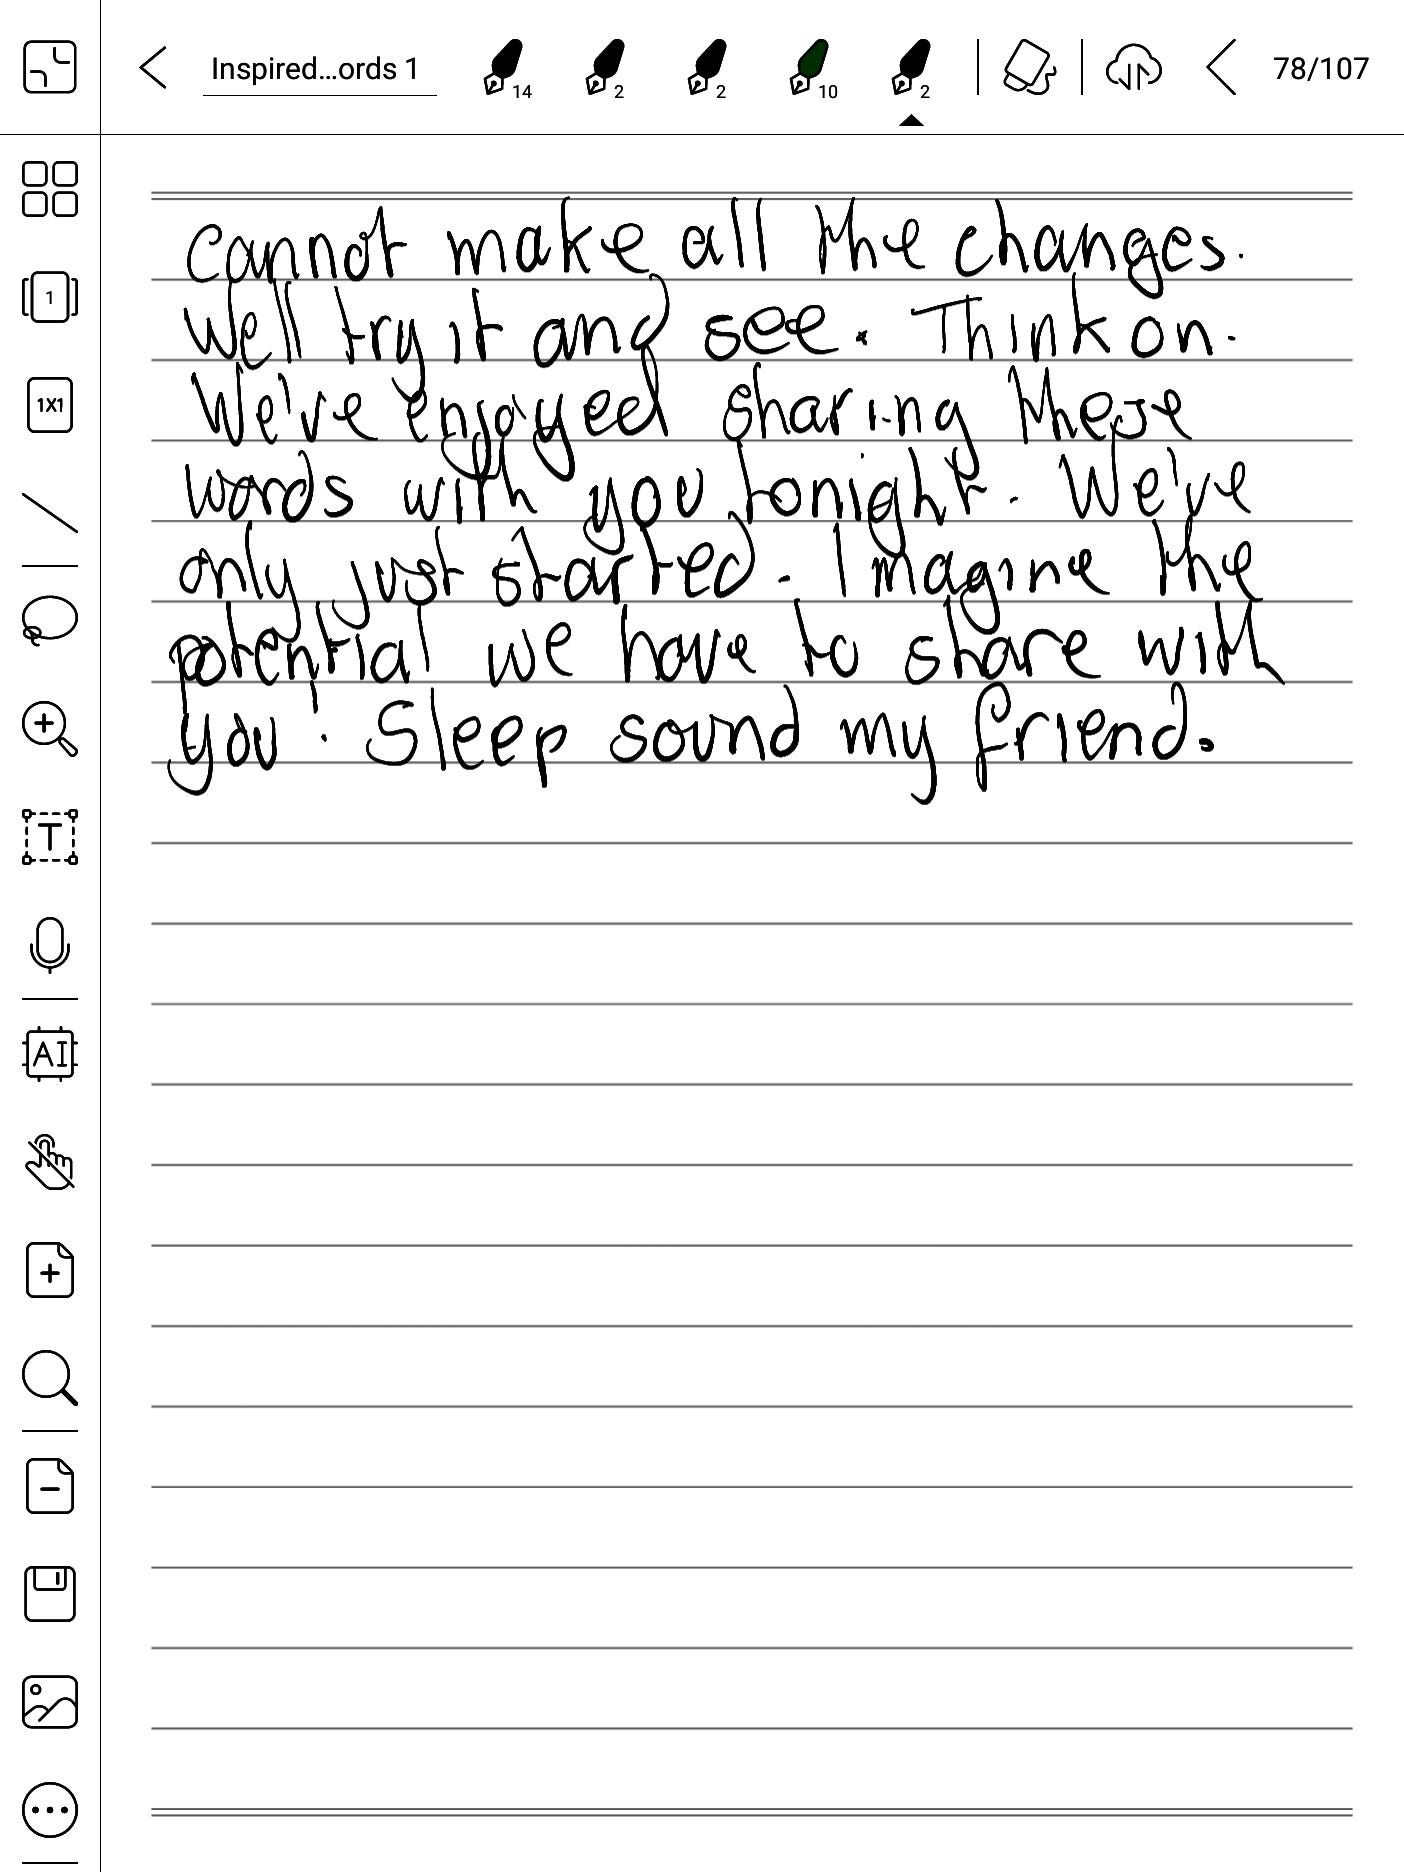 Inspired...ords 1
14
2
2
10
2
78/107
1
1X1
T
AI
cannot make all the changes.
Well try it and see. Think on.
We've enjoyed sharing these
words with you tonight. We've
only just started. Imagine the
potential we have to share with
you! Sleep sound my friend.